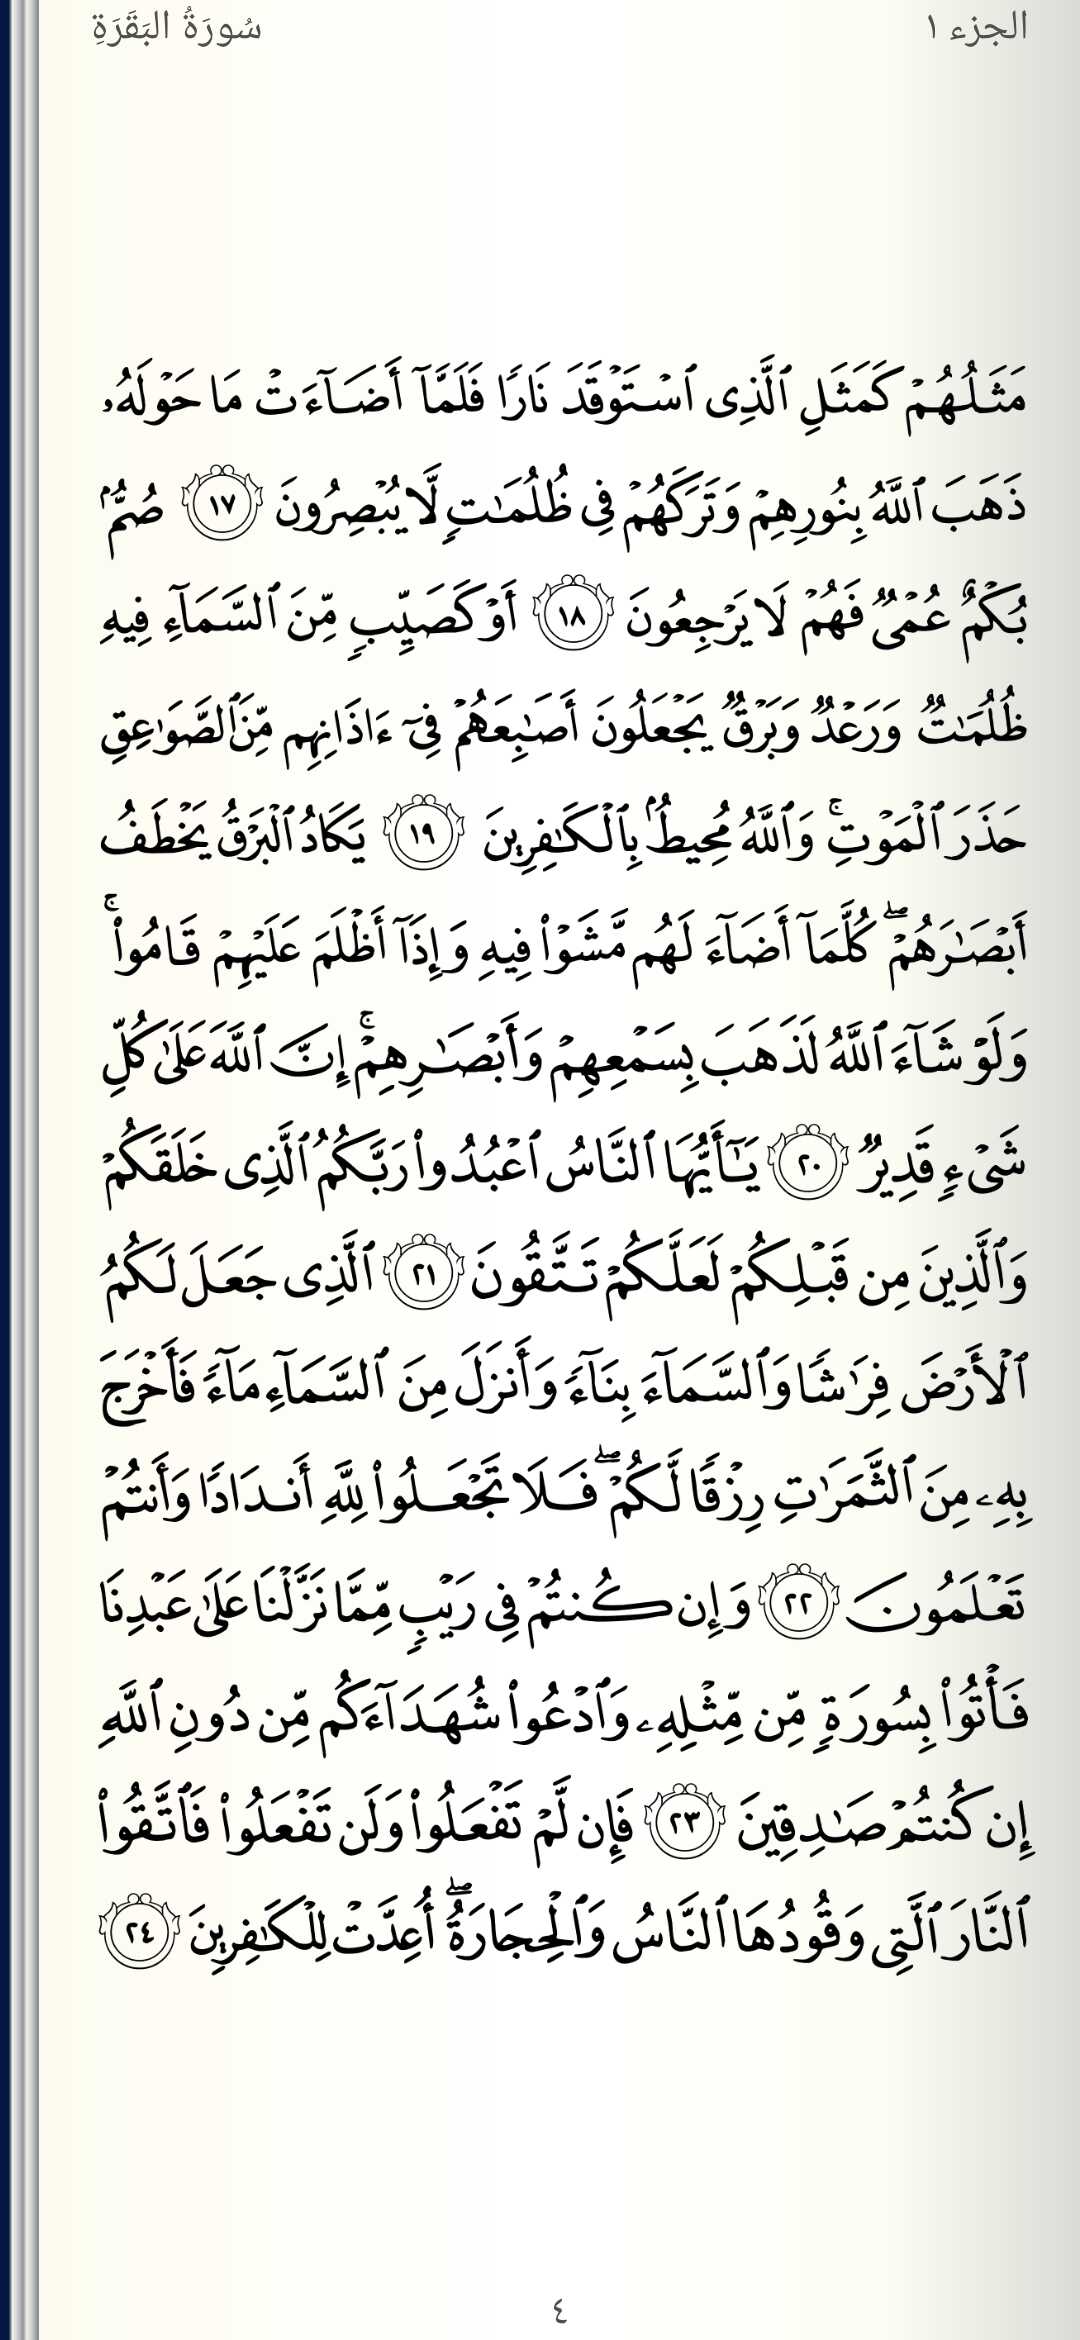 الجزء ١
سُورَةُ البَقَرَةِ
مَثَلُهُمْ كَمَثَلِ ٱلَّذِى ٱسْتَوْقَدَ نَارًا فَلَمَّآ أَضَآءَتْ مَا حَوْلَهُۥ
ذَهَبَ ٱللَّهُ بِنُورِهِمْ وَتَرَكَهُمْ فِى ظُلُمَـٰتٍ لَّا يُبْصِرُونَ ١٧ صُمٌّۢ
بُكْمٌ عُمْىٌ فَهُمْ لَا يَرْجِعُونَ ١٨ أَوْ كَصَيِّبٍ مِّنَ ٱلسَّمَآءِ فِيهِ
ظُلُمَـٰتٌ وَرَعْدٌ وَبَرْقٌ يَجْعَلُونَ أَصَـٰبِعَهُمْ فِىٓ ءَاذَانِهِم مِّنَ ٱلصَّوَٰعِقِ
حَذَرَ ٱلْمَوْتِ ۚ وَٱللَّهُ مُحِيطٌۢ بِٱلْكَـٰفِرِينَ ١٩ يَكَادُ ٱلْبَرْقُ يَخْطَفُ
أَبْصَـٰرَهُمْ ۖ كُلَّمَآ أَضَآءَ لَهُم مَّشَوْا۟ فِيهِ وَإِذَآ أَظْلَمَ عَلَيْهِمْ قَامُوا۟ ۚ
وَلَوْ شَآءَ ٱللَّهُ لَذَهَبَ بِسَمْعِهِمْ وَأَبْصَـٰرِهِمْ ۚ إِنَّ ٱللَّهَ عَلَىٰ كُلِّ
شَىْءٍ قَدِيرٌ ٢٠ يَـٰٓأَيُّهَا ٱلنَّاسُ ٱعْبُدُوا۟ رَبَّكُمُ ٱلَّذِى خَلَقَكُمْ
وَٱلَّذِينَ مِن قَبْلِكُمْ لَعَلَّكُمْ تَتَّقُونَ ٢١ ٱلَّذِى جَعَلَ لَكُمُ
ٱلْأَرْضَ فِرَٰشًا وَٱلسَّمَآءَ بِنَآءً وَأَنزَلَ مِنَ ٱلسَّمَآءِ مَآءً فَأَخْرَجَ
بِهِۦ مِنَ ٱلثَّمَرَٰتِ رِزْقًا لَّكُمْ ۖ فَلَا تَجْعَلُوا۟ لِلَّهِ أَندَادًا وَأَنتُمْ
تَعْلَمُونَ ٢٢ وَإِن كُنتُمْ فِى رَيْبٍ مِّمَّا نَزَّلْنَا عَلَىٰ عَبْدِنَا
فَأْتُوا۟ بِسُورَةٍ مِّن مِّثْلِهِۦ وَٱدْعُوا۟ شُهَدَآءَكُم مِّن دُونِ ٱللَّهِ
إِن كُنتُمْ صَـٰدِقِينَ ٢٣ فَإِن لَّمْ تَفْعَلُوا۟ وَلَن تَفْعَلُوا۟ فَٱتَّقُوا۟
ٱلنَّارَ ٱلَّتِى وَقُودُهَا ٱلنَّاسُ وَٱلْحِجَارَةُ ۖ أُعِدَّتْ لِلْكَـٰفِرِينَ ٢٤
٤